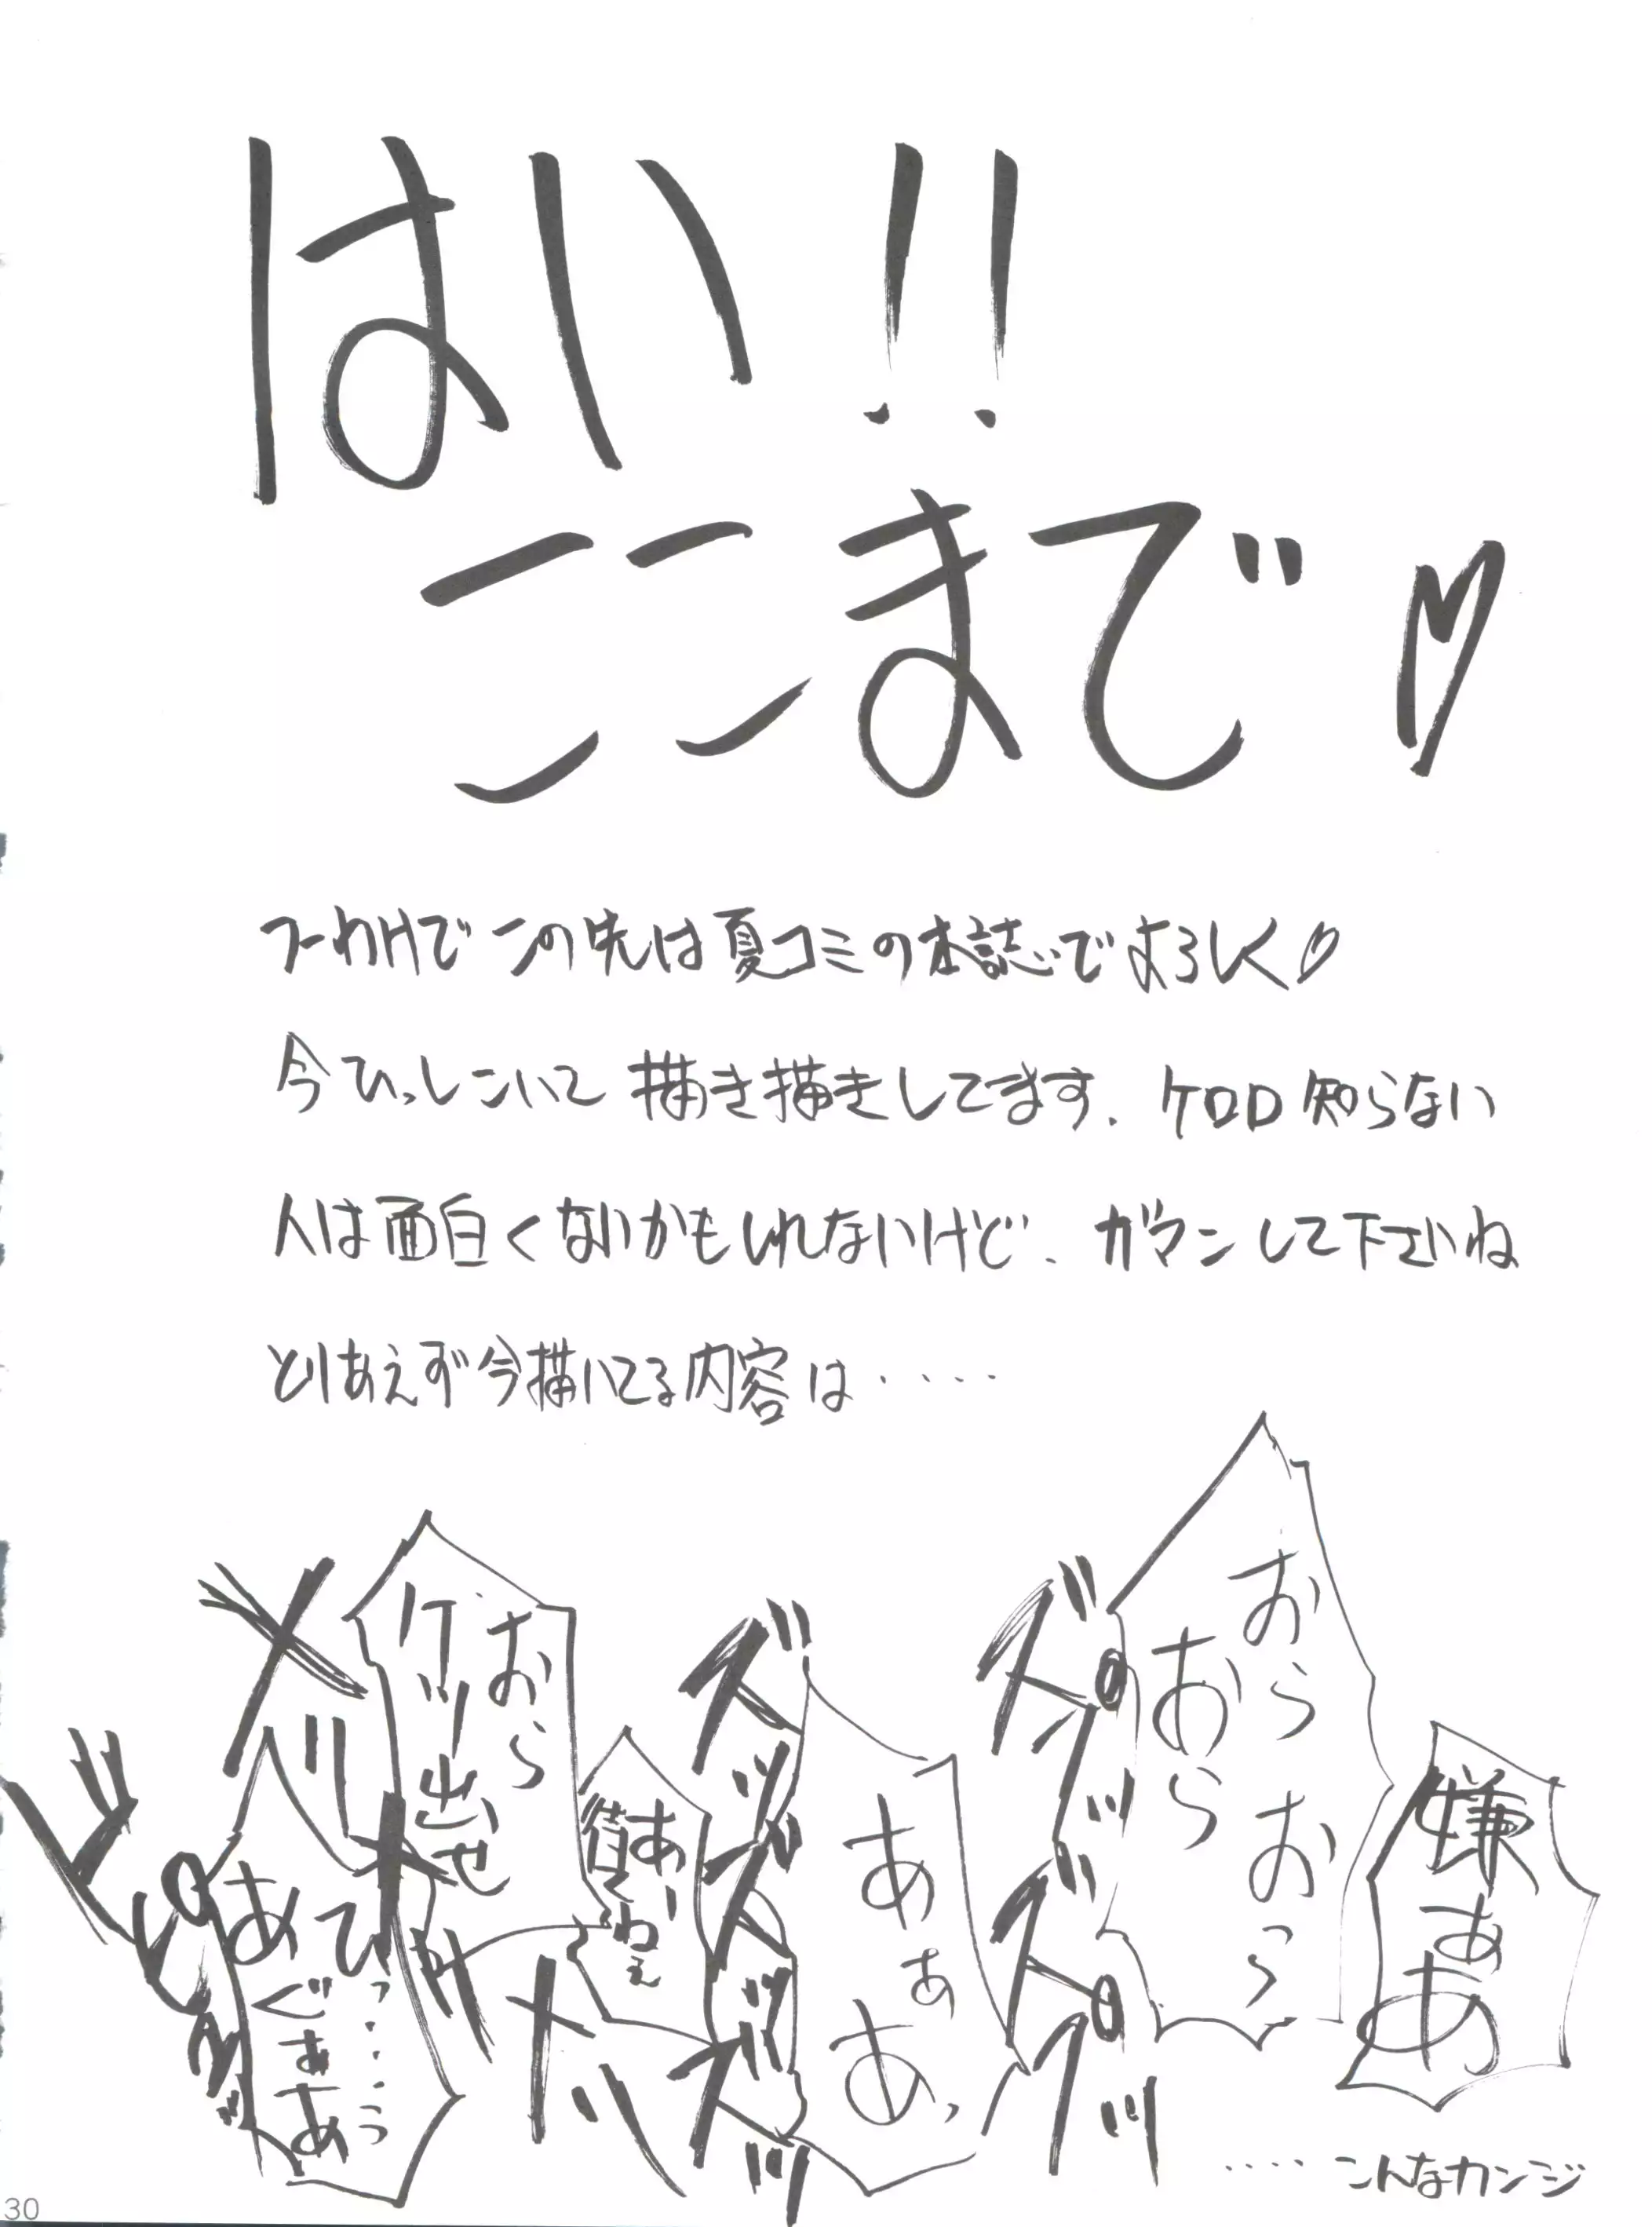 はい!!
ここまで♡
つーわけでこの先は夏コミの本誌でよろしく♡
今ひっしこいて描き描きしてます。ケロロ知らない
人は面白くないかもしれないけど、ガマンして下さいね
とりあえず今描いてる内容は・・・・・
嫌ぁあ
おらおっ
おら
ズグッ
ズグッ
あぁあっ
ズッズッズッ
あー
わぇ
おら
ケツ出せ
メリ
ひっ・・・・・っ
あぐぁあ
・・・・こんなカンジ
30